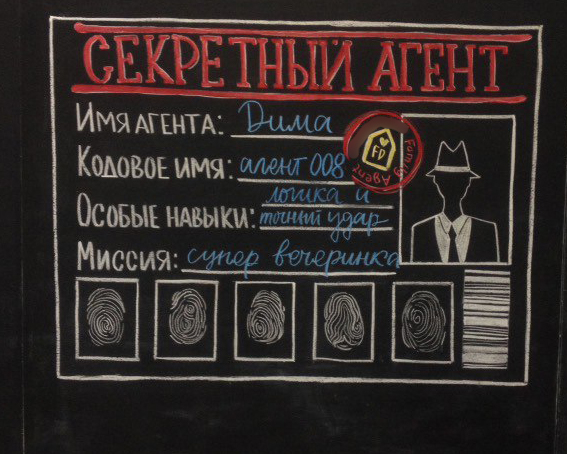 СЕКРЕТНЫЙ АГЕНТ
ИМЯ АГЕНТА: Дима
КОДОВОЕ ИМЯ: агент 008
логика и
ОСОБЫЕ НАВЫКИ: точный удар
МИССИЯ: супер вечеринка
FD
Family Agent